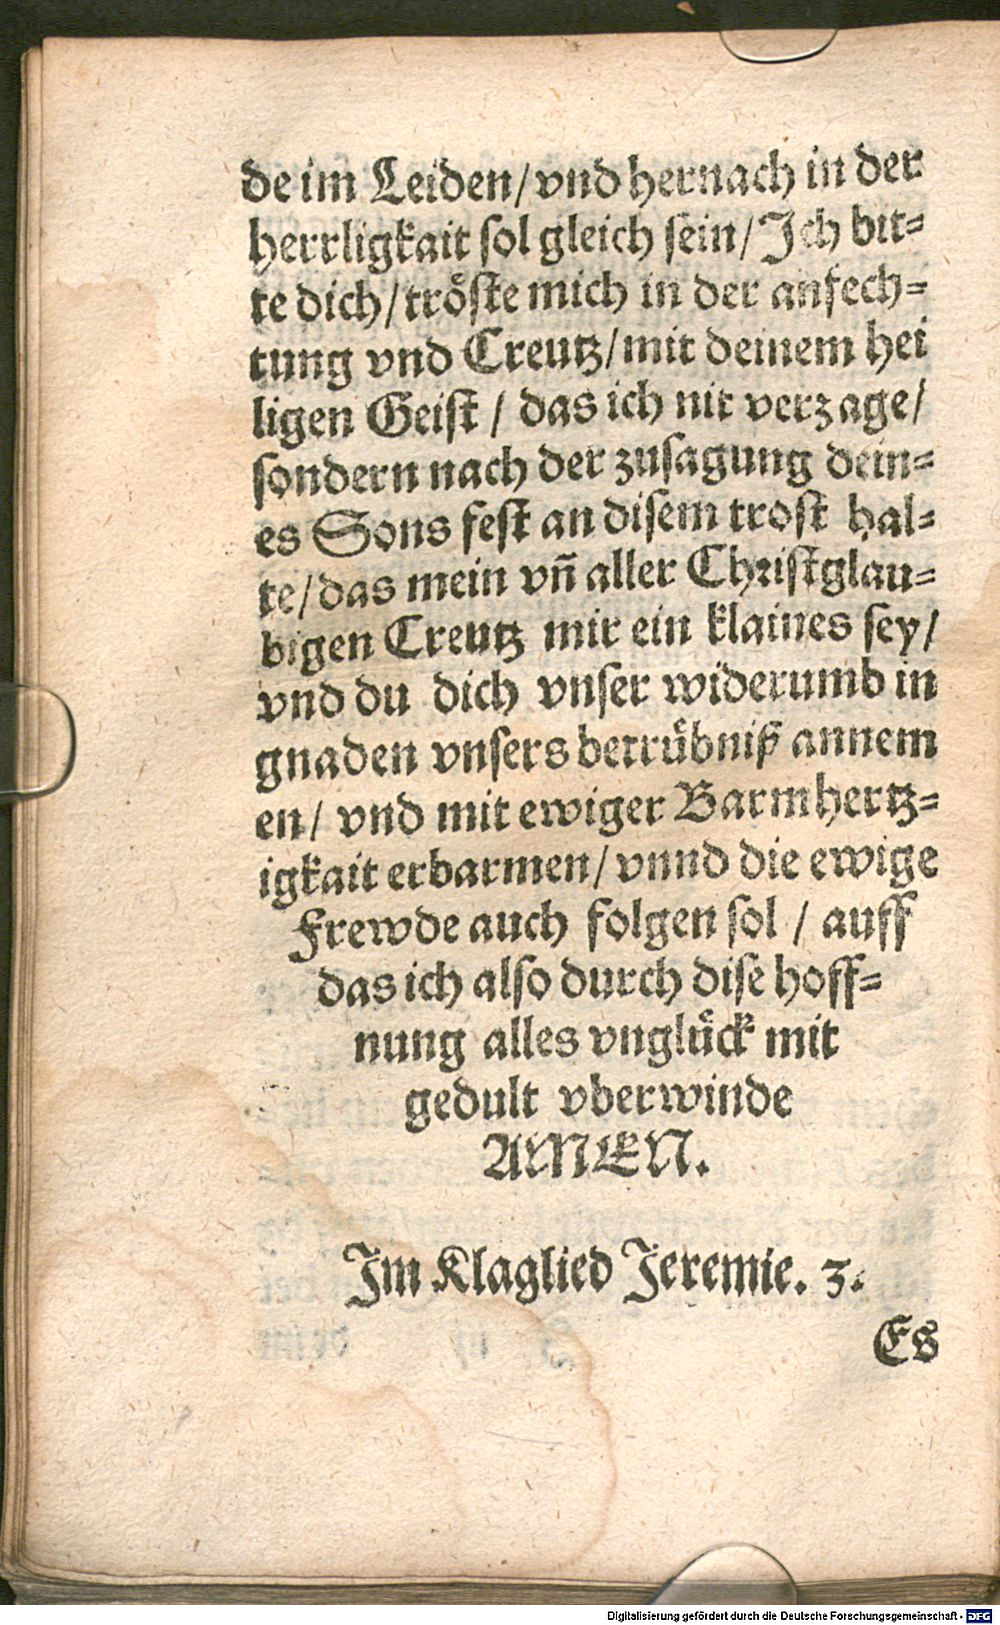 de im Leiden/ vnd hernach in der
herrligkait sol gleich sein/ Ich bit⸗
te dich/ tröste mich in der anfech⸗
tung vnd Creutz/ mit deinem hei
ligen Geist / das ich nit verzage/
sondern nach der zusagung dein⸗
es Sons fest an disem trost hal⸗
te/ das mein vñ aller Christglau⸗
bigen Creutz mir ein klaines sey/
vnd du dich vnser widerumb in
gnaden vnsers betrübniß annem
en/ vnd mit ewiger Barmhertz⸗
igkait erbarmen/ vnnd die ewige
Frewde auch folgen sol / auff
das ich also durch dise hoff⸗
nung alles vnglück mit
gedult vberwinde
AMEN.
Im Klaglied Jeremie. 3.
Es
Digitalisierung gefördert durch die Deutsche Forschungsgemeinschaft - DFG